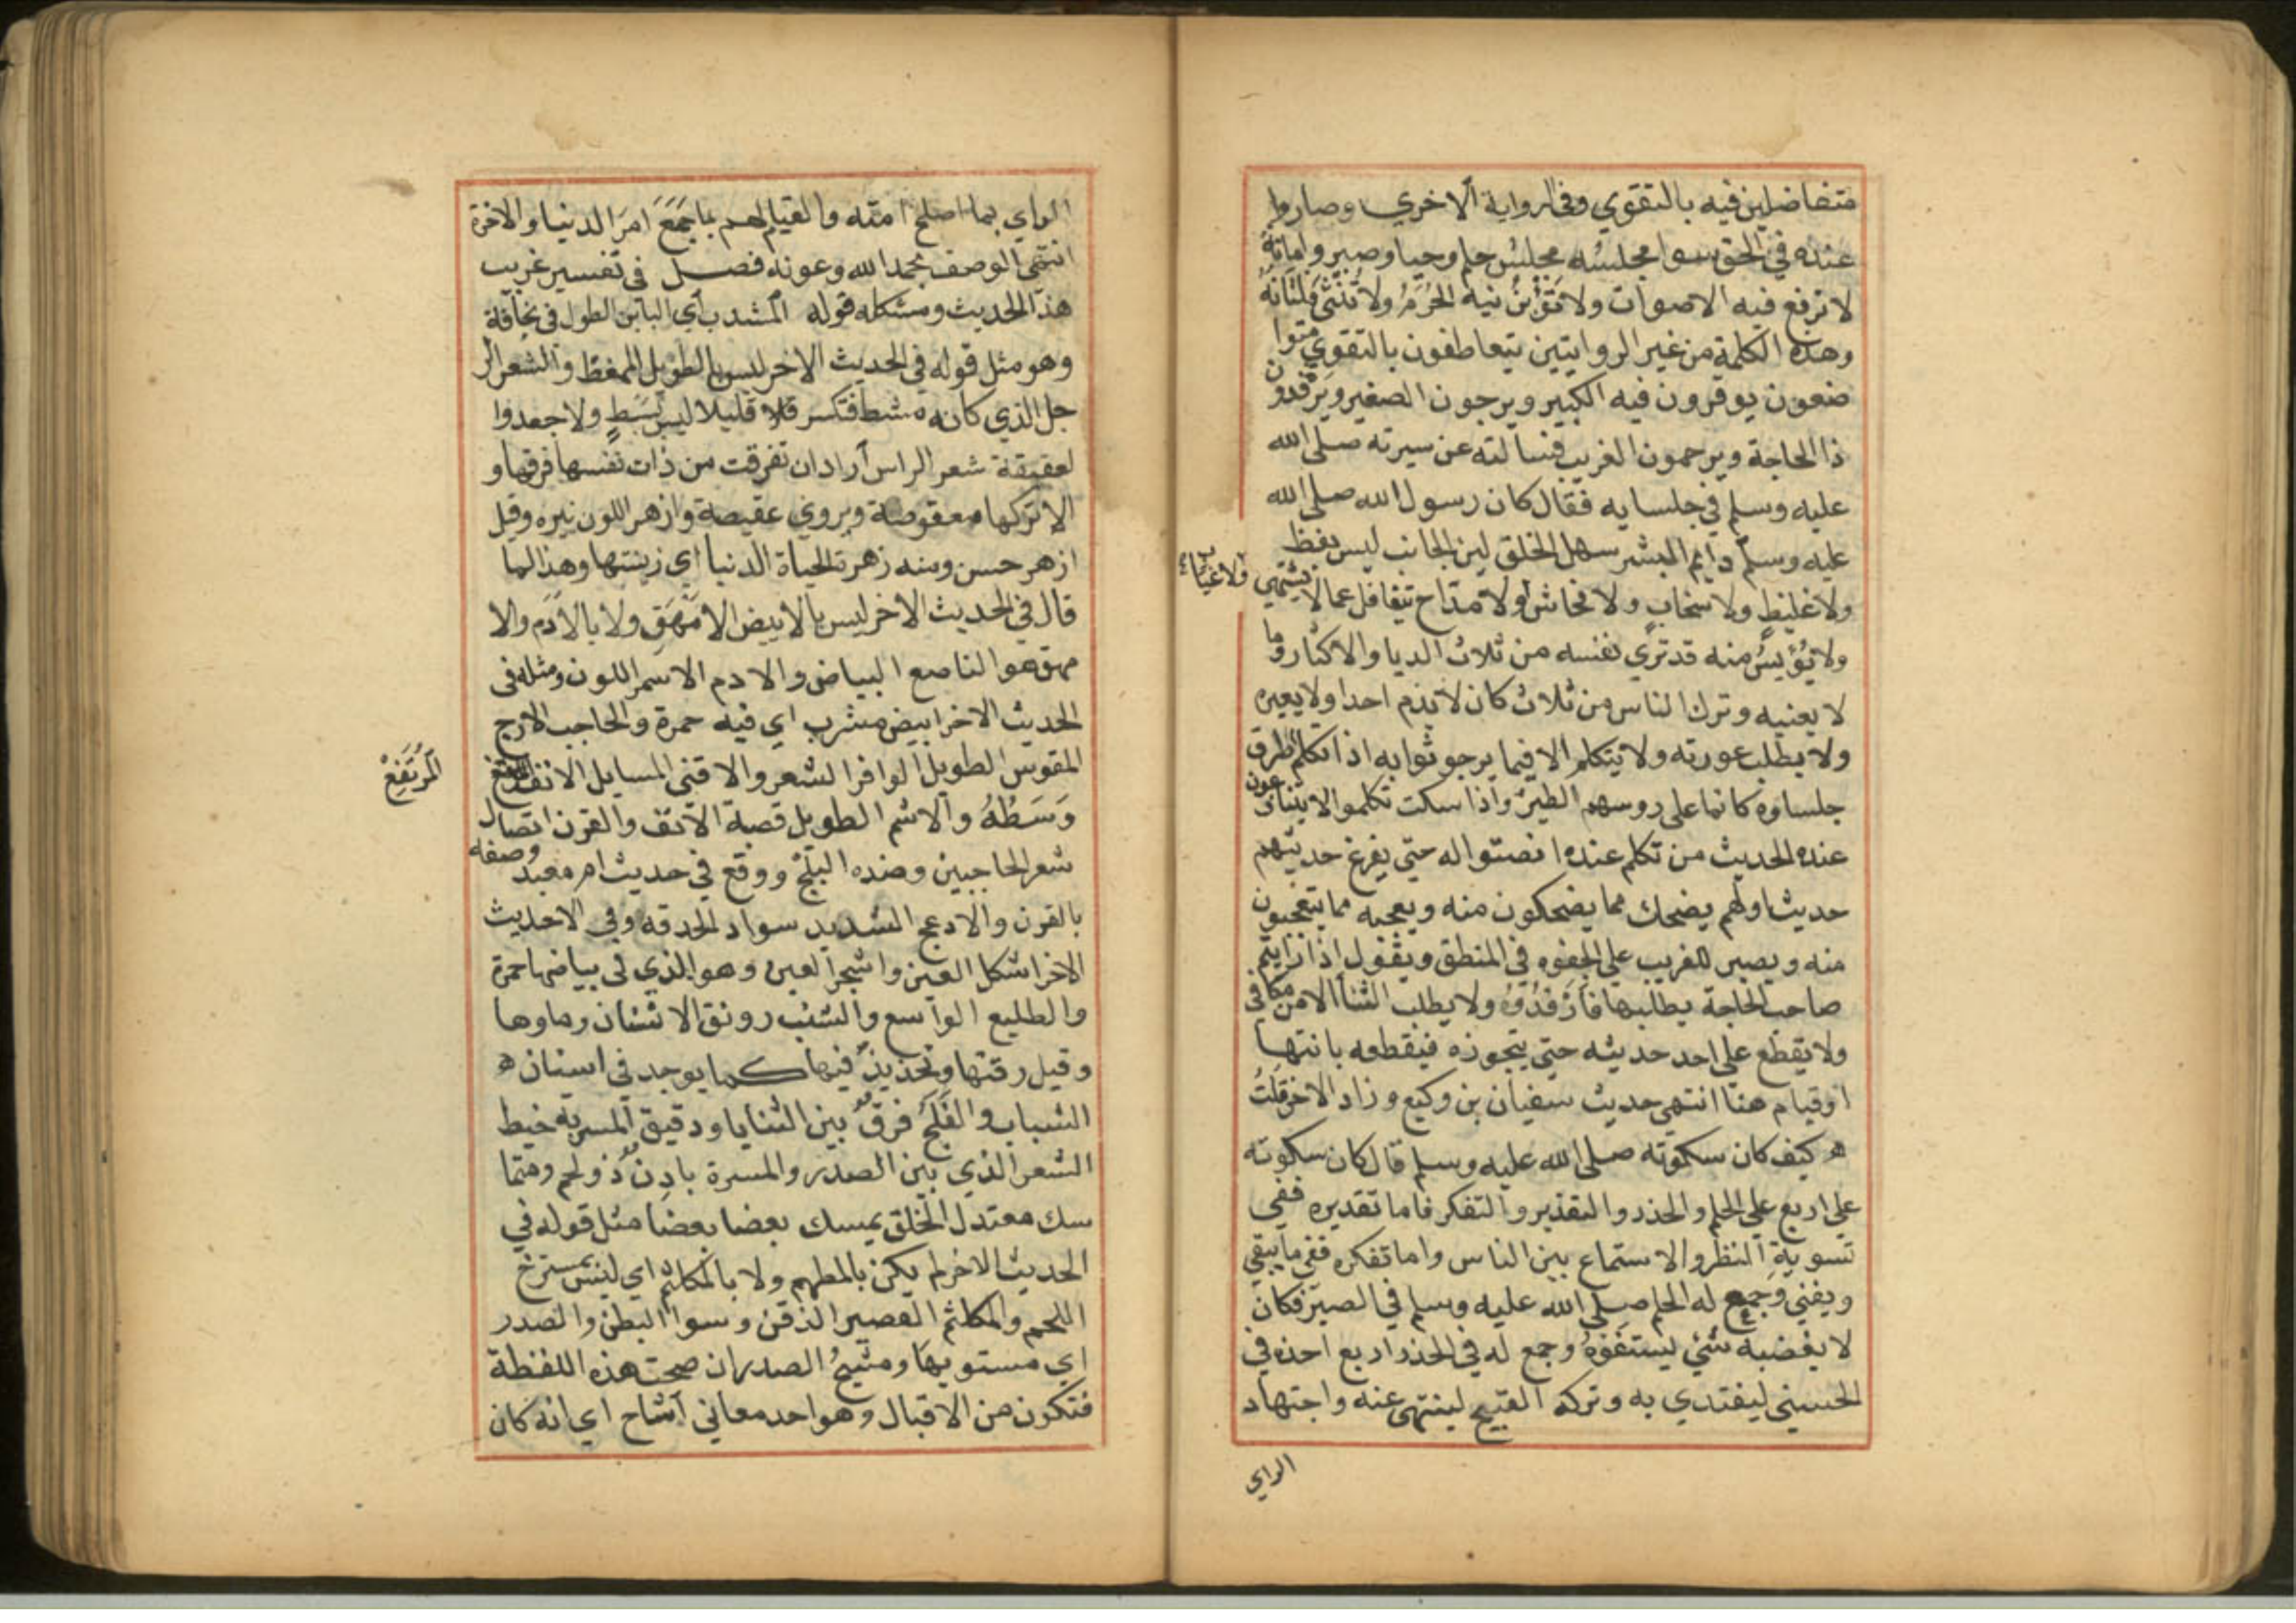 متفاضلين فيه بالتقوي وفي الرواية الاخري وصاروا
عنده في الحق سوا مجلسُه مجلسُ حلم وحيا وصبر وامانة
لا ترفع فيه الاصوات ولا تؤبنُ فيه الحُرَمُ ولا تُنْثَى فلتاتُهُ
وهذه الكلمة من غير الروايتين يتعاطفون بالتقوي متوا
ضعون يوقرون فيه الكبير ويرحمون الصغير ويَرْفدون
ذا الحاجة ويرحمون الغريب فسالته عن سيرته صلى الله
عليه وسلم في جلسايه فقال كان رسول الله صلى الله
عليه وسلم دايم البشر سهل الخلق لين الجانب ليس بفظ
ولا غليظ ولا سخابٍ ولا فحاش ولا مداح يتغافل عما لا يشتهي
ولا عياب
ولا يُؤيسُ منه قد ترك نفسه من ثلاث الريا والاكثار وما
لا يعنيه وترك الناس من ثلاث كان لا يذم احدا ولا يعيره
ولا يطلب عورته ولا يتكلم الا فيما يرجو ثوابه اذا تكلم اطرق
جلساوه كانما على روسهم الطير واذا سكت تكلموا لا يتنازعون
عنده الحديث من تكلم عنده انصتوا له حتي يفرغ حديثهم
حديث اولهم يضحك مما يضحكون منه ويعجبه مما يتعجبون
منه ويصبر للغريب علي الجفوه في المنطق ويقول اذا رايتم
صاحب الحاجة يطلبها فارْفدُوهُ ولا يطلب الثنا الا من مكافي
ولا يقطع علي احد حديثه حتي يتجوزه فيقطعه بانتها
اوقيام هنا انتهي حديث سفيان بن وكيع وزاد الاخر قلتُ
ه كيف كان سكوته صلى الله عليه وسلم قال كان سكوته
علي اربع علي الحلم والحذر والتقدير والتفكر فاما تقديره ففي
تسوية النظر والاستماع بين الناس واما تفكره ففيما يبقي
ويفني وجمع له الحلم صلى الله عليه وسلم في الصبر فكان
لا يغضبه شي يستفزه وجمع له في الحذر اربع اخذه في
الحسني ليقتدي به وتركه القبيح لينتهي عنه واجتهاد
الراي
الراي بما اصلح امته والقيام لهم بما جَمَعَ امرَ الدنيا والاخرة
انتهى الوصف بحمد الله وعونه فصل في تفسير غريب
هذا الحديث ومشكله قوله المشذب اي الباين الطول في نحافة
وهو مثل قوله في الحديث الاخر ليس بالطويل الممغط والشعر الر
جل الذي كانه مشط فتكسر قليلا ليس بسَبطٍ ولا جعد وا
لعقيقة شعر الراس اراد ان تفرقت من ذات نفسها فرقها و
الا تركها معقوصة ويروي عقيصة وازهر اللون نيره وقيل
ازهر حسن ومنه زهرة الحياة الدنيا اي زينتها وهذا كما
قال في الحديث الاخر ليس بالابيض الامْهَقِ ولا بالآدَمِ والا
مهق هو الناصع البياض والادم الاسمر اللون ومثله في
الحديث الاخر ابيض مشرب اي فيه حمرة والحاجب الازج
المقوس الطويل الوافر الشعر والاقنى السايل الانف المرتفع
المُرْتَفِعُ
وَسَطُهُ والاشم الطويل قصبة الانف والقرن اتصال
شعر الحاجبين وضده البَلَجُ ووقع في حديث ام معبد وصفه
بالقرن والادعج الشديد سواد الحدقه وفي الاحديث
الاخر اشكل العين واسجر العين وهو الذي في بياضها حمرة
والضليع الواسع والشنب رونق الاسنان وماوها
وقيل رقتها وتحزيز فيها كما يوجد في اسنان ه
الشباب والفَلَجُ فرقٌ بين الثنايا ودقيق المسربة خيط
الشعر الذي بين الصدر والسرة بادِنٌ ذو لحم ومتما
سك معتدل الخلق يمسك بعضا بعضا مثل قوله في
الحديث الاخر لم يكن بالمطهم ولا بالمكلثم اي ليس بمسترخ
اللحم والمكلثم القصير الذقن وسوا البطن والصدر
اي مستويها ومشيحُ الصدر ان صحت هذه اللفظة
فتكون من الاقبال وهو احد معاني اشاح اي انه كان